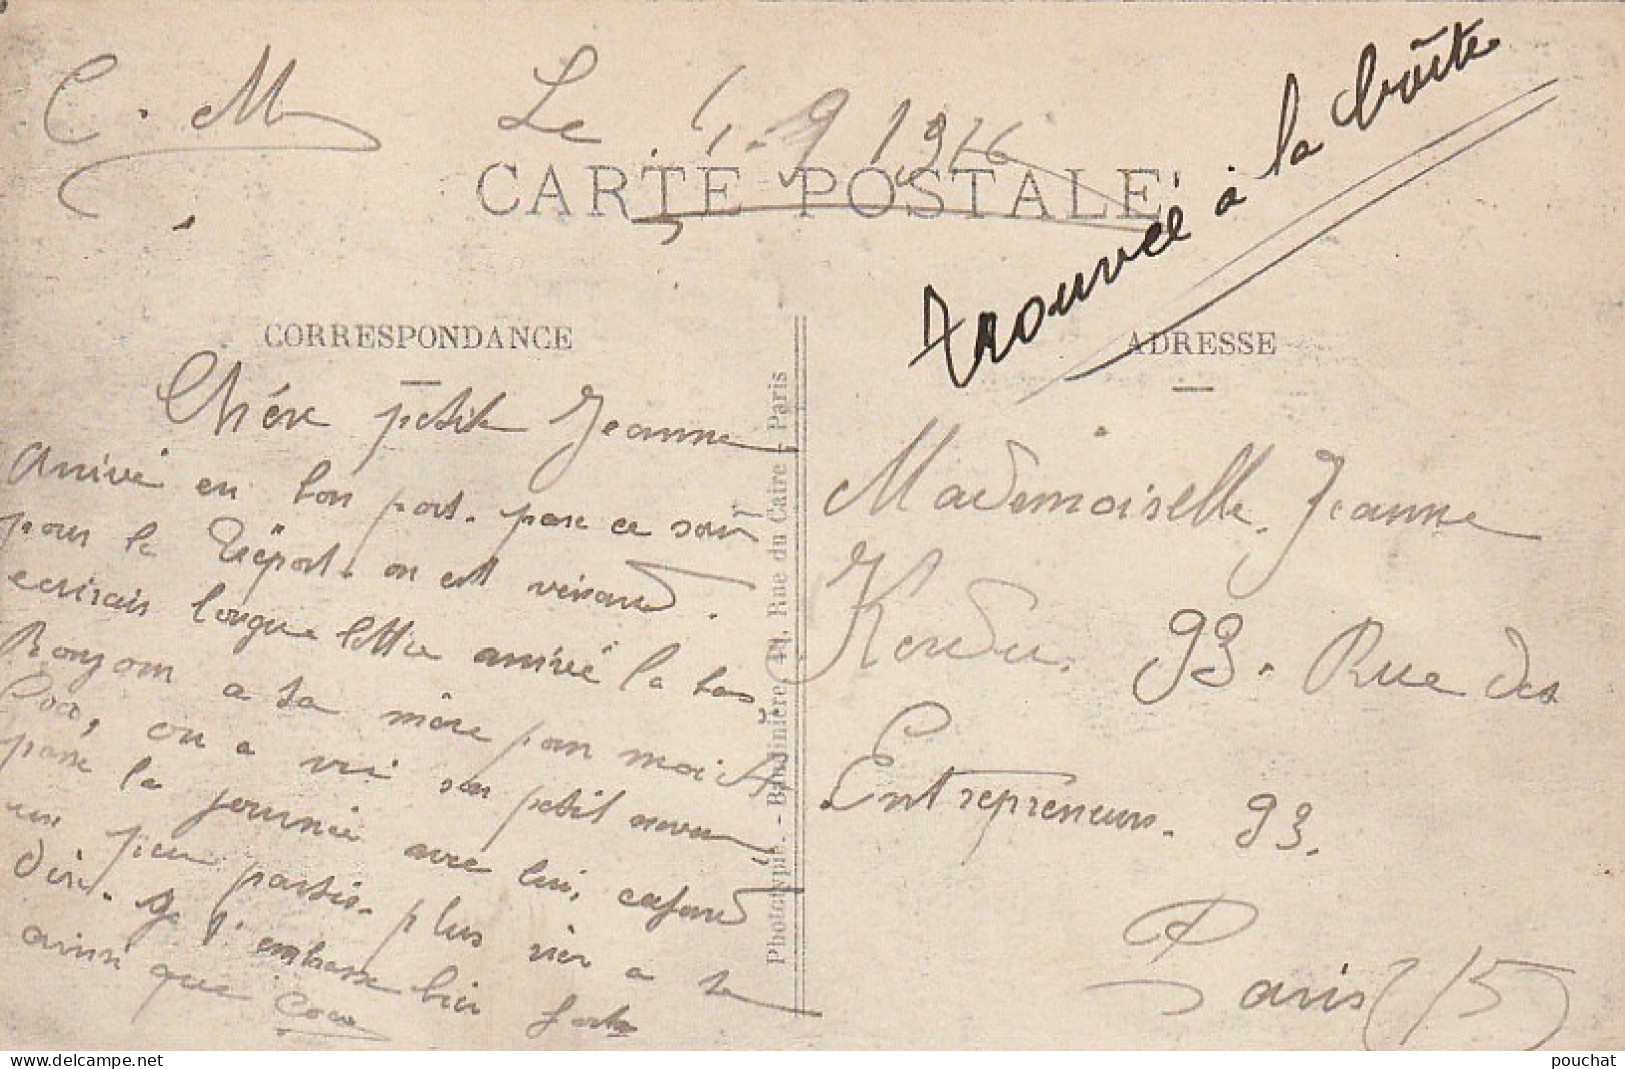 C. M
Le 4.9 1926
CARTE POSTALE
trouvée à la boîte
CORRESPONDANCE
ADRESSE
Chére petite Jeanne
Arrivé en bon port. pars ce soir
pour le Tréport. on est
ecrirais longue lettre arrivé la bas,
Bonjour a ta mére pour moi &
Coco, on a vu son petit neveu
passé la journée avec lui, cafard
un peu partis. plus rien a te
dire. Je t'embrasse bien fort
ainsi que Coco
Mademoiselle. Jeanne
93. Rue des
Entrepreneurs. 93.
Paris (15)
Phototypie. - Baudinière, 44, Rue du Caire - Paris
pouchat